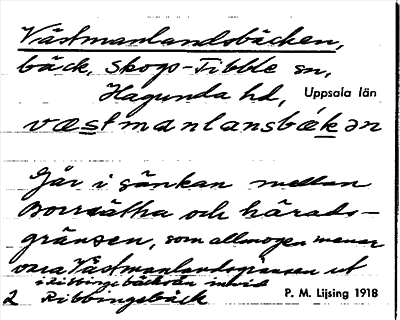 Västmanlandsbäcken,
bäck, Skogs-Tibble sn,
Hagunda hd, Uppsala län
væstmanlansbäkən
Går i sänkan mellan
Borrsätra och härads-
gränsen, som allmogen menar
vara Västmanlandsgränsen ut
i Ribbingebäcken invid
2 Ribbingebäck P. M. Lijsing 1918